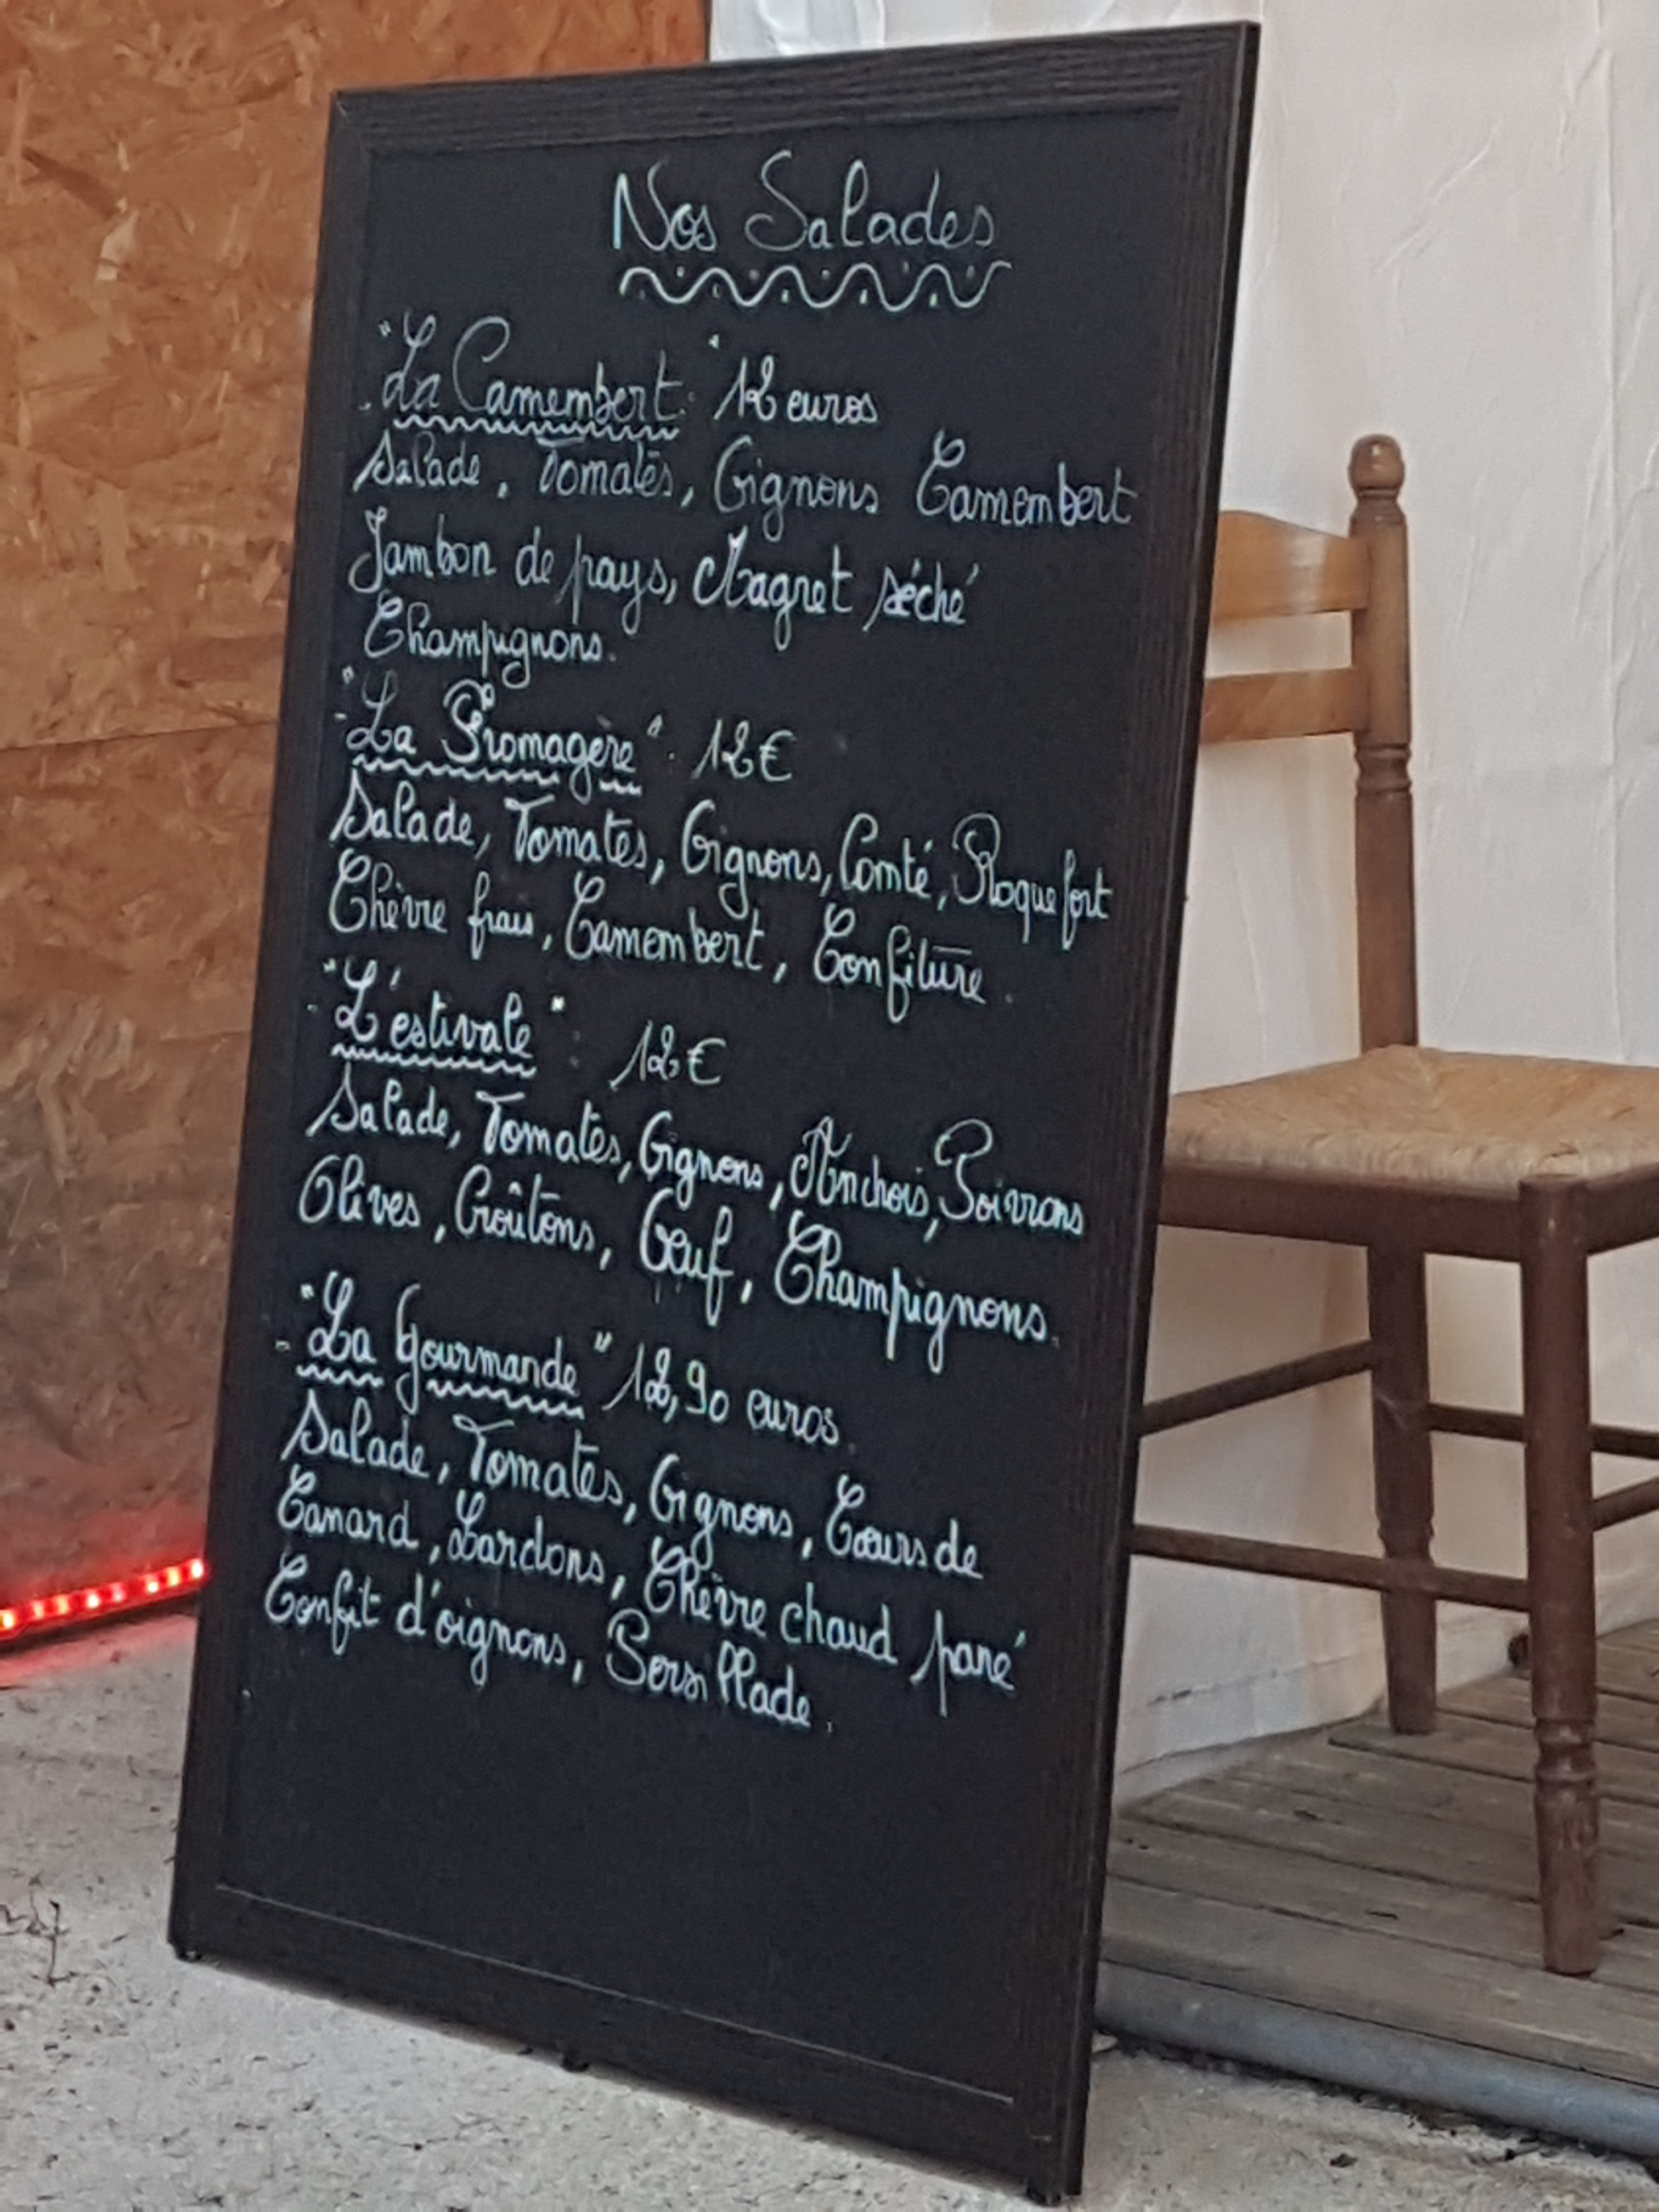 Nos Salades
- "La Camembert" 12 euros
Salade, Tomates, Oignons Camembert
Jambon de pays, Magret séché
Champignons.
- "La Fromagère" : 12€
Salade, Tomates, Oignons, Comté, Roquefort
Chèvre frais, Camembert, Confiture.
- "L'estivale" : 12€
Salade, Tomates, Oignons, Anchois, Poivrons
Olives, Croûtons, Oeuf, Champignons.
- "La Gourmande" 12,90 euros.
Salade, Tomates, Oignons, Coeurs de
Canard, Lardons, Chèvre chaud pané
Confit d'oignons, Persillade.